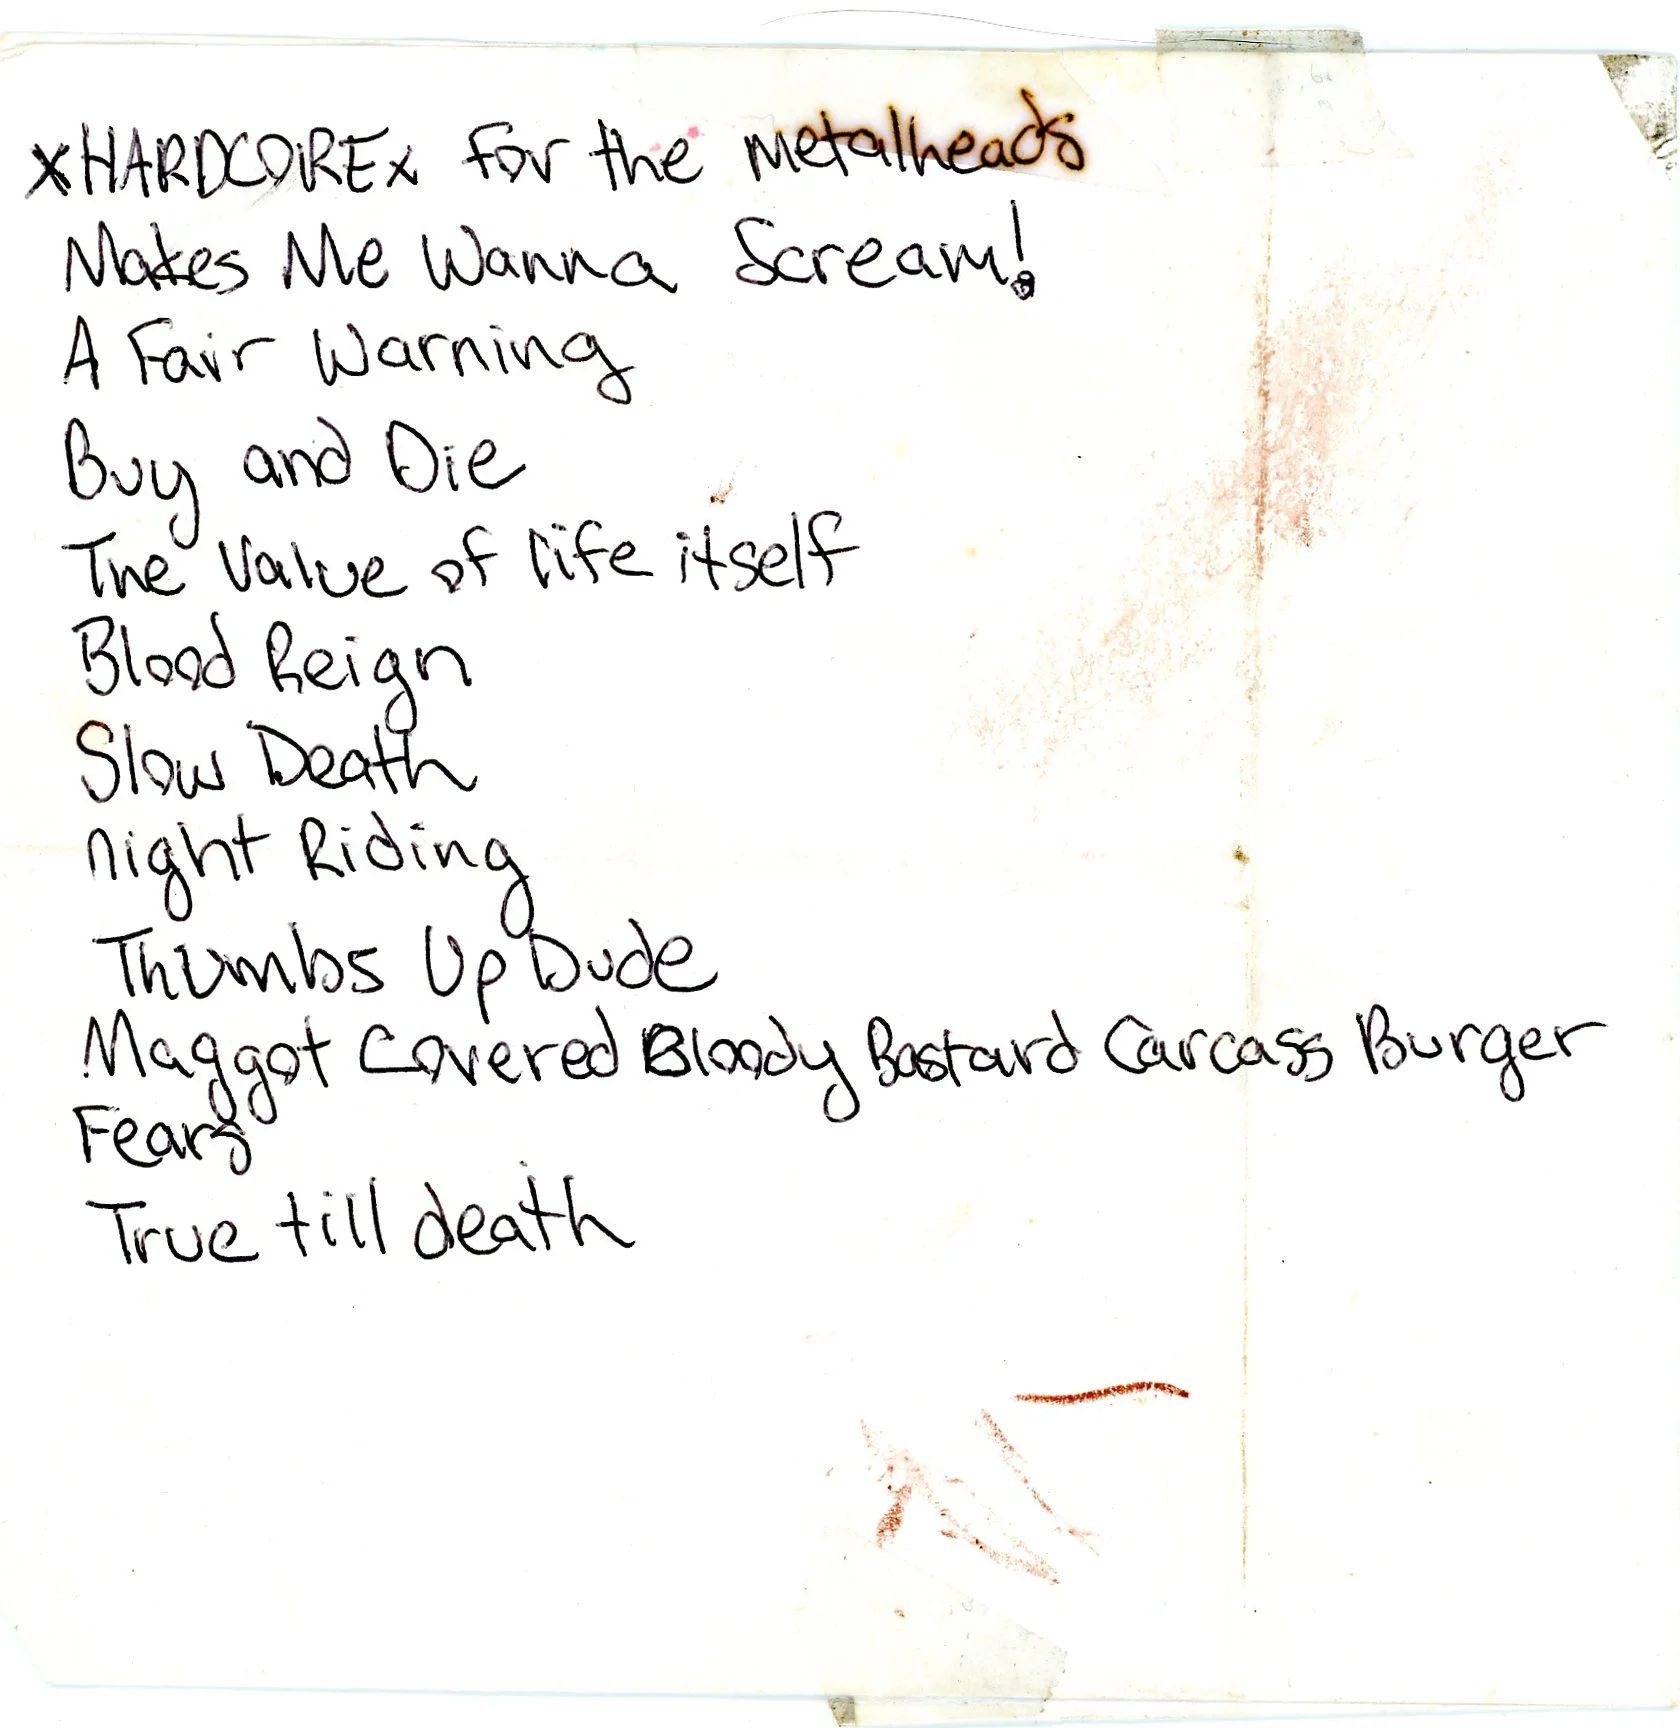 xHARDCOREx for the metalheads
Makes Me Wanna Scream!
A Fair Warning
Buy and Die
The Value of life itself
Blood Reign
Slow Death
night Riding
Thumbs Up Dude
Maggot Covered Bloody Bastard Carcass Burger
Fears
True till death